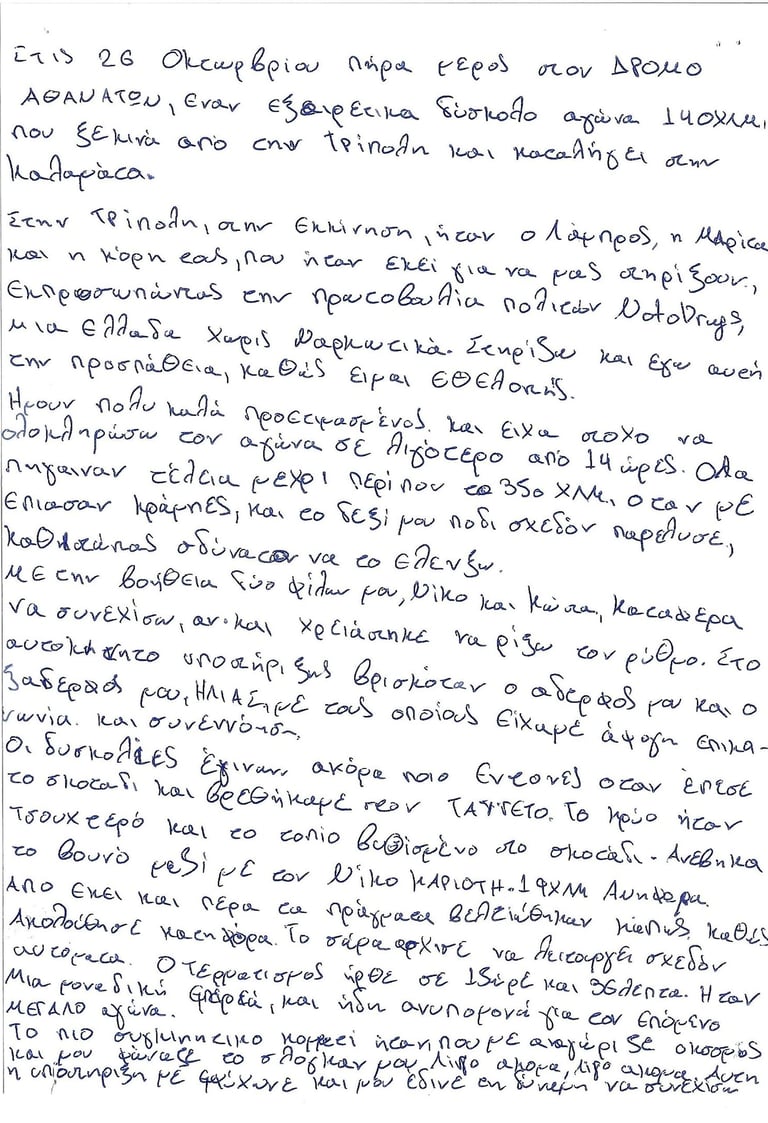 Στις 26 Οκτωρβριου πήρα μερος στον ΔΡΟΜΟ
ΑΘΑΝΑΤΩΝ, εναν εξαιρετικα δύσκολο αγώνα 140ΧΛΜ.
που ξεκινά από την Τρίπολη και καταλήγει στην
Καλαμάτα.
Στην Τρίπολη, στην εκκίνηση, ήταν ο Λάμπρος, η Μαρίκα
και η κόρη τους, που ήταν εκεί για να μας στηρίξουν,
εκπροσωπώντας την πρωτοβουλία πολιτών NotoDrugs,
μια Ελλαδα χωρις Ναρκωτικά. Στηρίζω και εγω αυτή
την προσπάθεια, καθώς ειμαι εθελοντής.
Ήμουν πολυ καλά προετοιμασμένος. και ειχα στοχο να
ολοκληρώσω τον αγώνα σε λιγότερο από 14 ώρες. Ολα
πηγαιναν τέλεια μεχρι περίπου το 35ο ΧΛΜ. οταν με
επιασαν κράμπες, και το δεξί μου ποδι σχεδόν παρέλυσε,
καθιστώντας αδύνατον να το ελενξω.
Με την βοήθεια δύο φίλων μου, Νίκο και Κώστα, καταφερα
να συνεχίσω, αν και χρειάστηκε να ρίξω τον ρύθμο. Στο
αυτοκινητο υποστήριξης βρισκόταν ο αδερφος μου και ο
ξαδερφος μου, ΗΛΙΑΣ, με τους οποίους είχαμε άψογη επικοι-
νωνία και συνεννόηση.
Οι δυσκολίες έγιναν ακόμα ποιο εντονες οταν έπεσε
το σκοταδι και βρεθήκαμε στον ΤΑΥΓΕΤΟ. Το κρύο ήταν
τσουχτερό και το τοπίο βυθισμένο στο σκοτάδι. Ανεβηκα
το βουνό μαζί με τον Νίκο ΚΑΡΙΟΤΗ. 19ΧΛΜ Ανηφορα.
Απο εκει και πέρα τα πράγματα βελτιώθηκαν κάπως, καθώς
Ακολούθησε κατηφορα. Το σώμα αρχισε να λειτουργεί σχεδόν
αυτόματα. Ο τερματισμος ήρθε σε 15ώρε και 36λεπτα. Ηταν
Μια μοναδική εμπειρία, και ήδη ανυπομονώ για τον επόμενο
μεγαλο αγώνα.
Το πιο συγκινητικο κομματι ήταν, που με αναγώριζε ο κοσμος
και μου φώναζε το σλόγκαν μου λιγο ακομα, λιγο ακομα. Αυτη
η υποστηριξη με εμψύχωνε και μου έδινε τη δύναμη να συνεχισω